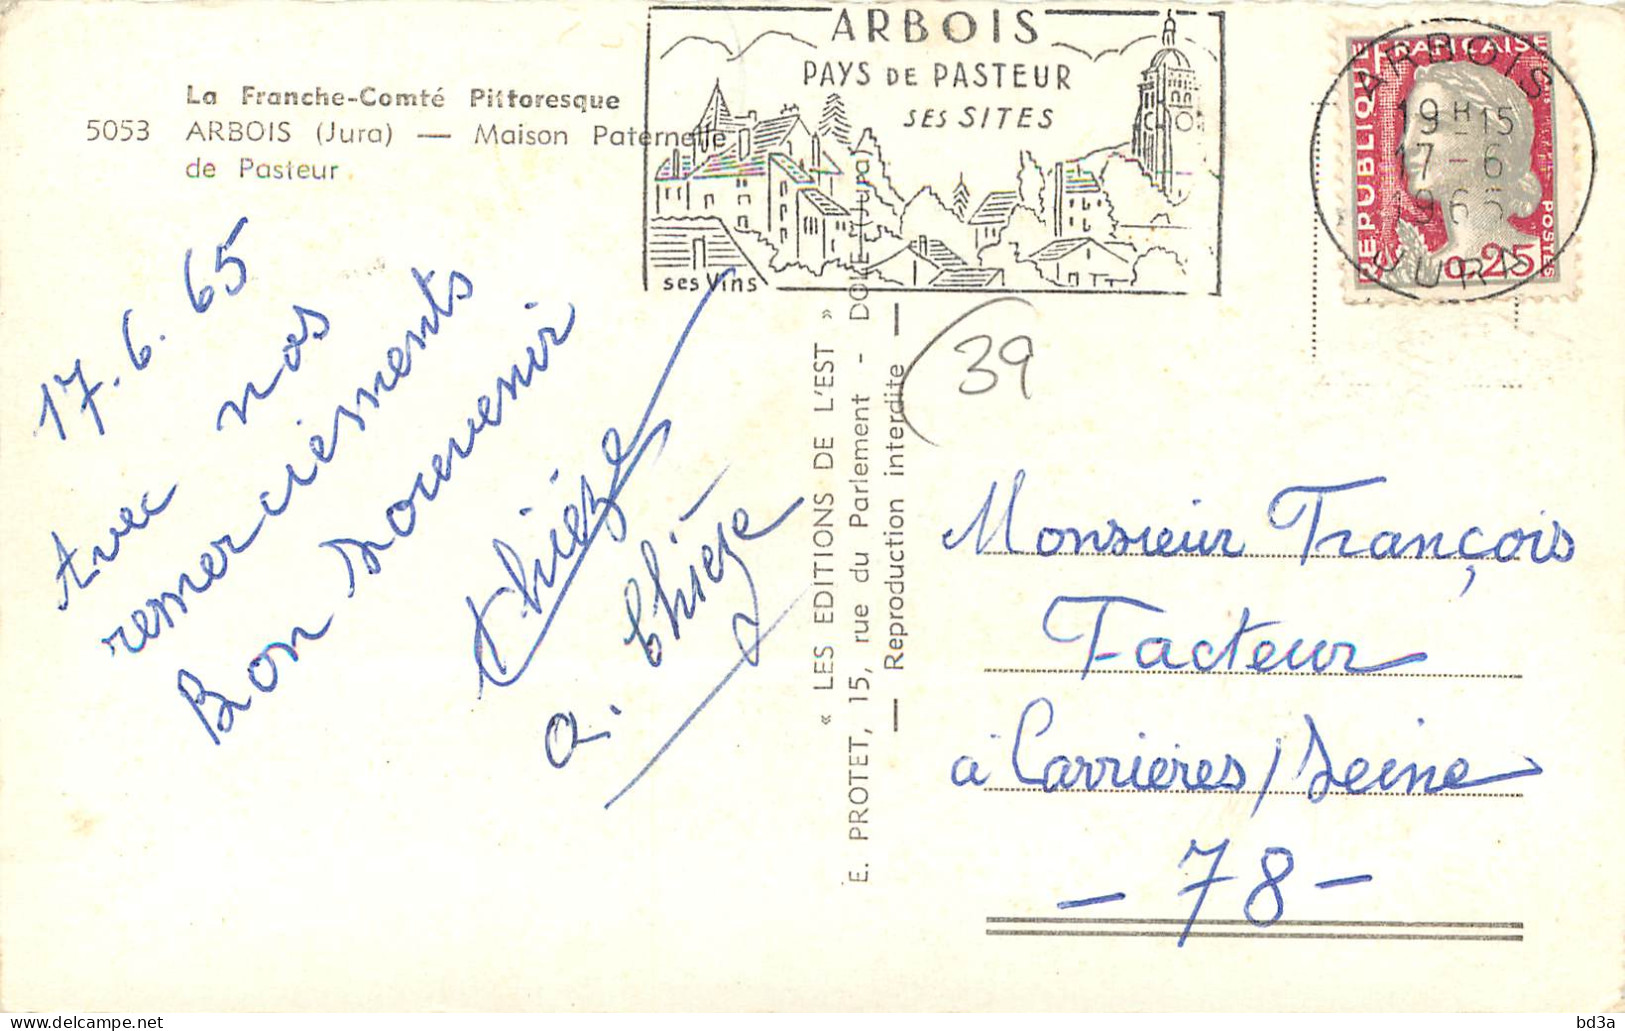 La Franche-Comté Pittoresque
5053 ARBOIS (Jura) — Maison Paternelle
de Pasteur
ARBOIS
PAYS DE PASTEUR
SES SITES
ses Vins
RÉPUBLIQUE FRANÇAISE
POSTES
0,25
ARBOIS
19 H 15
17 - 6
1965
JURA
39
17.6.65
Avec nos
remerciements
Bon souvenir
thièze
a. thièze
« LES EDITIONS DE L'EST »
E. PROTET, 15, rue du Parlement - DOLE (Jura)
— Reproduction interdite —
Monsieur François
Facteur
à Carrières/Seine
- 78 -
bd3a